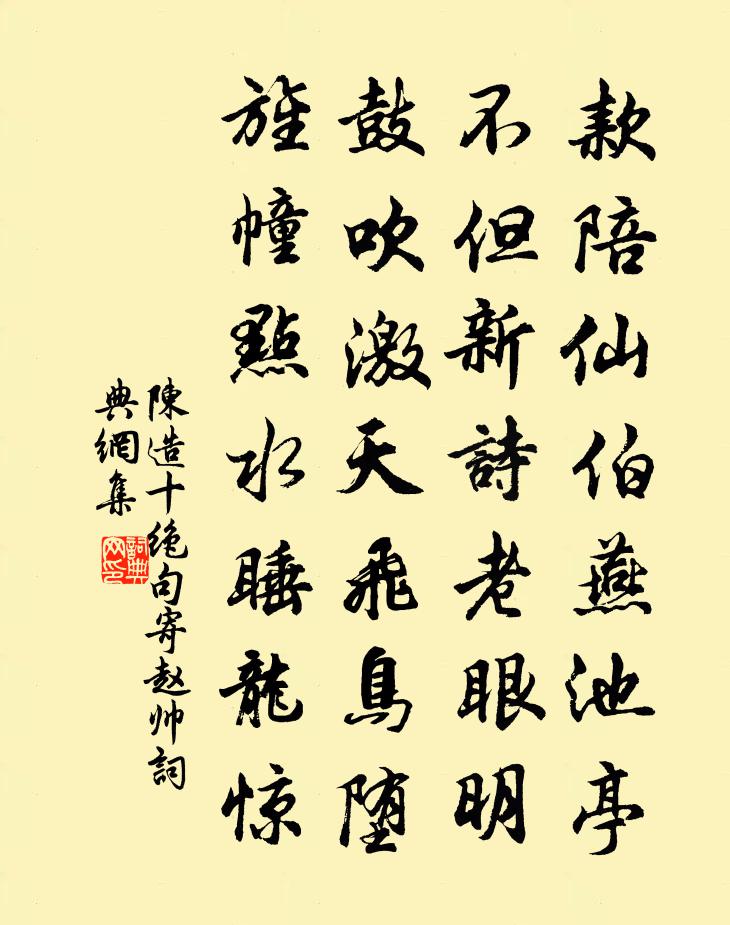 款陪仙伯燕池亭
不但新詩老眼明
鼓吹激天飛鳥堕
旌幢點水睡龍惊
陳造十绝句寄赵帅詞
典網集
詞典
网印